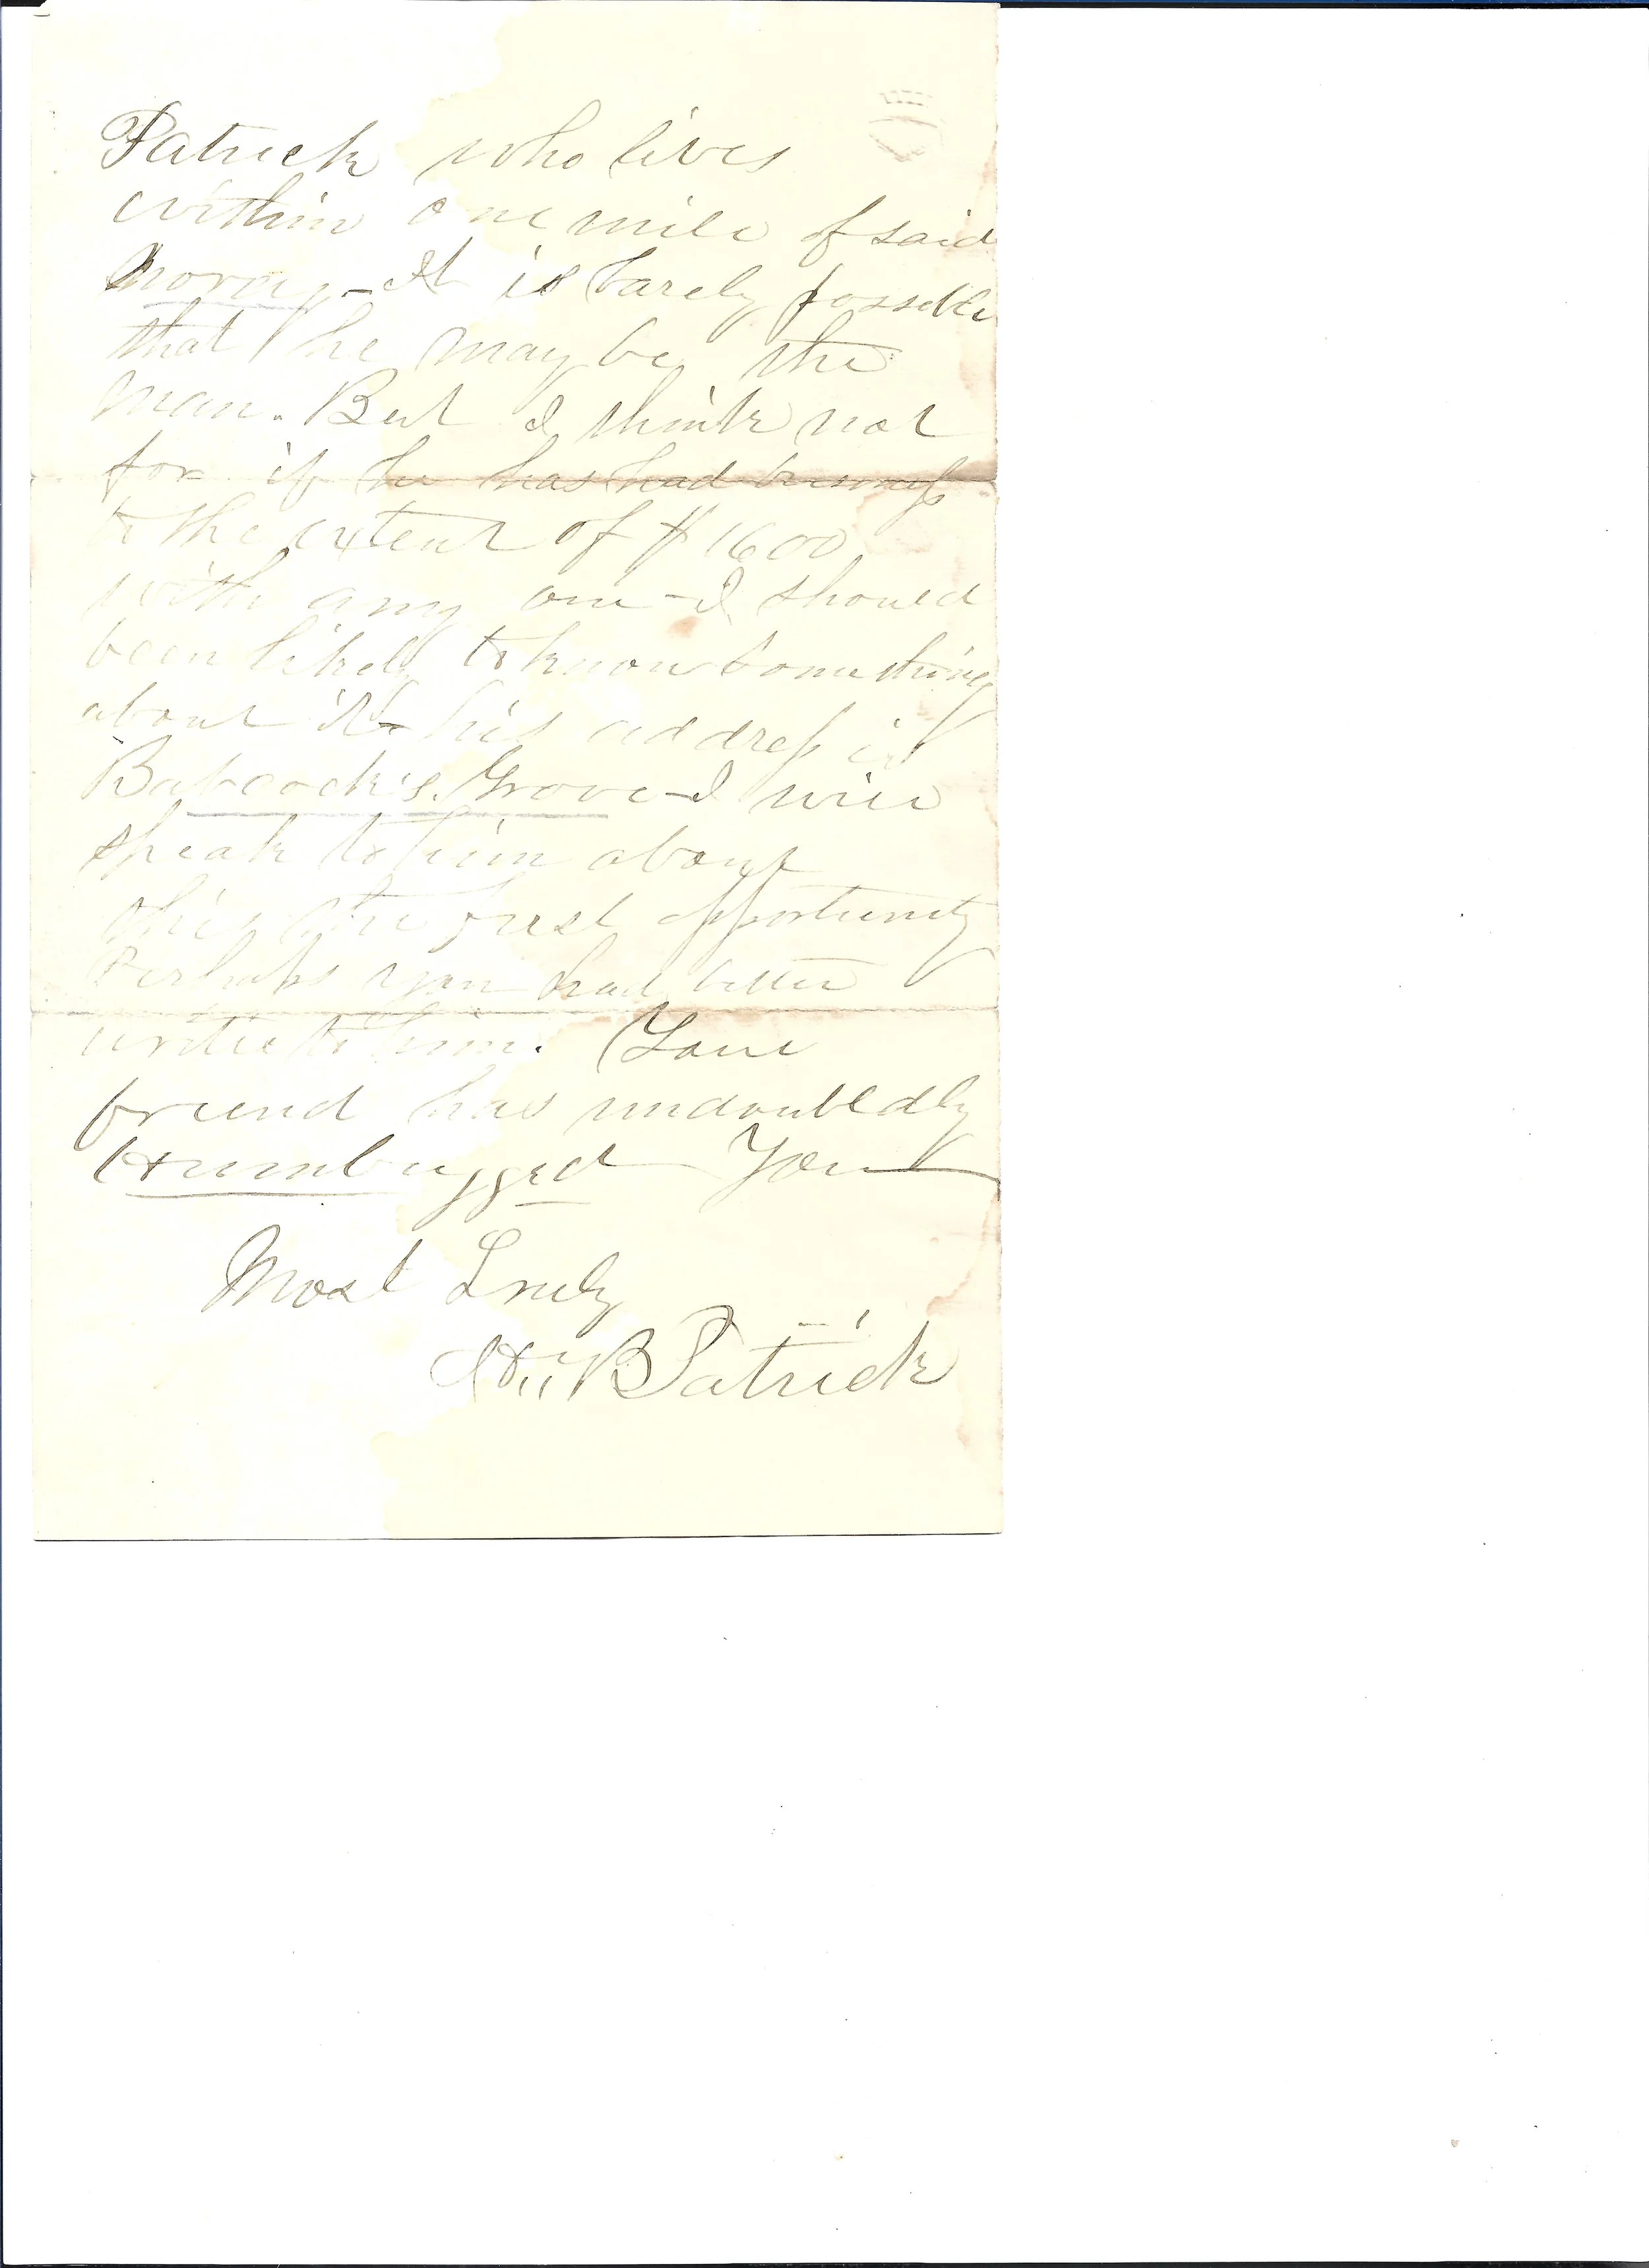 Patrick who lives
within one mile of said
It is barely possible
that he may be the
man. But I think not
for if he has had business
to the extent of $1600
with any one - I should
been likely to know something
about it - his address is
Babcock's Grove - I will
speak to him about
this the first opportunity
Perhaps you had better
write to him. Your
friend has undoubtedly
Humbugged You
Most Truly
B Patrick